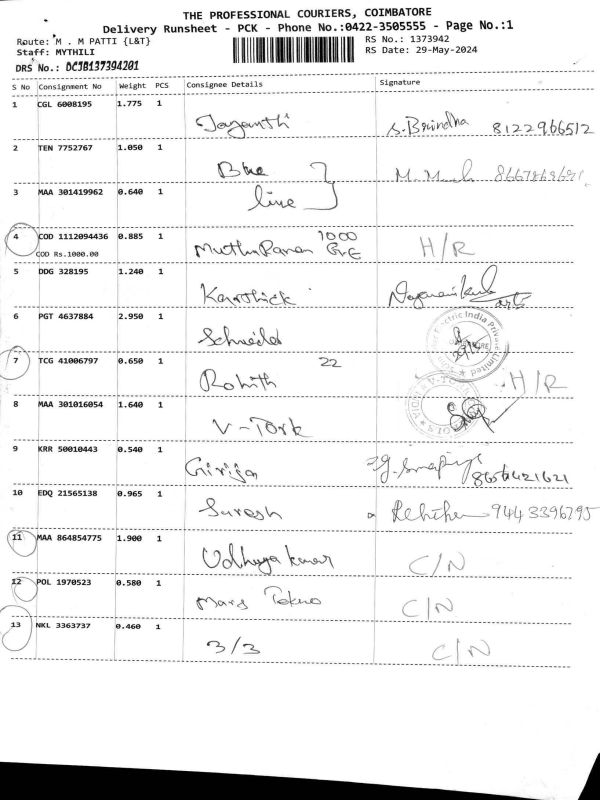 THE PROFESSIONAL COURIERS, COIMBATORE
Delivery Runsheet - PCK - Phone No.:0422-3505555 - Page No.:1
Route: M . M PATTI {L&T}
RS No.: 1373942
Staff: MYTHILI
RS Date: 29-May-2024
DRS No.: DCJB137394201
S No Consignment No Weight PCS Consignee Details Signature
1 CGL 6008195 1.775 1 Jayanthi S. Brindha 8122966512
2 TEN 7752767 1.050 1 Blue
3 MAA 301419962 0.640 1 line
4 COD 1112094436 0.885 1 1000 H/R
COD Rs.1000.00
5 DDG 328195 1.240 1 Karthick
6 PGT 4637884 2.950 1 Schneider
7 TCG 41006797 0.650 1 Rohith 22 H/R
8 MAA 301016054 1.640 1 V-Tork
9 KRR 50010443 0.540 1 Girija
10 EDQ 21565138 0.965 1 Suresh 9443396795
11 MAA 864854775 1.900 1 Udhayakumar C/N
12 POL 1970523 0.580 1 Mars Tekno C/N
13 NKL 3363737 0.460 1 3/3 C/N